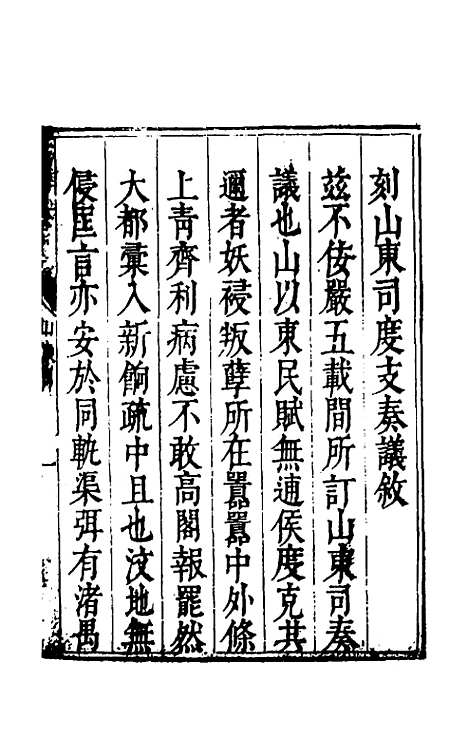 刻山東司度支奏議敘
茲不佞嚴五載間所訂山東司奏
議也山以東民賦無逋侯度克共
邇者妖祲叛孽所在囂囂中外條
上靑齊利病慮不敢高閣報罷然
大都彙入新餉疏中且也汶地無
侵疆言亦安於同軌渠弭有渚禺